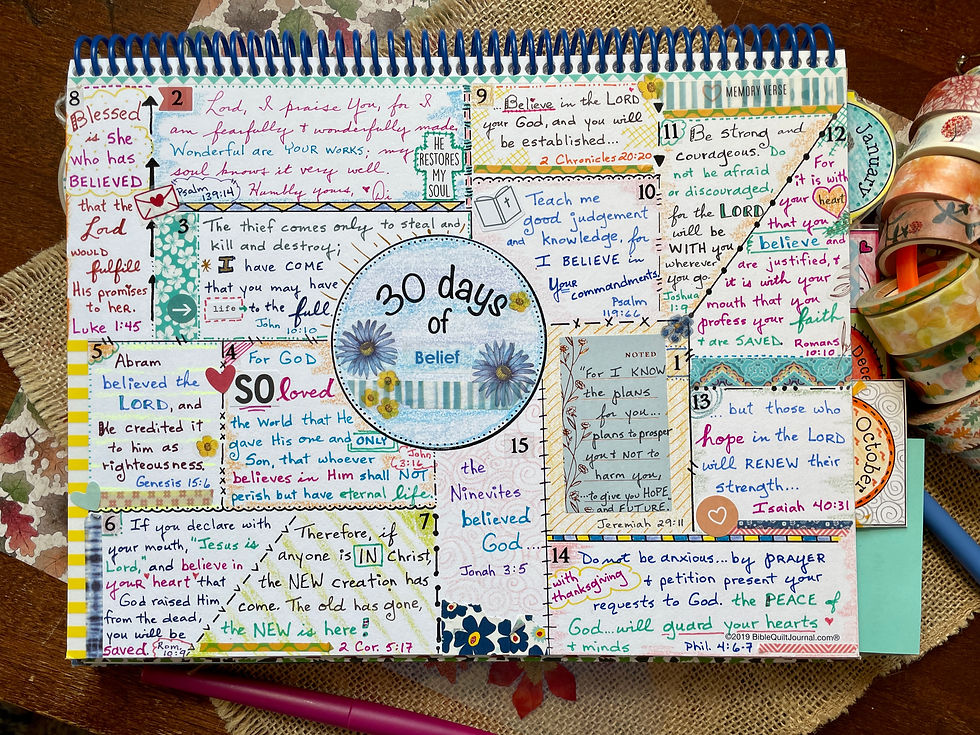 30 days
of
Belief
1
NOTED
"For I KNOW
the plans
for you...
plans to prosper
you & NOT to
harm you,
...to give you HOPE
and FUTURE.
Jeremiah 29:11
2
Lord, I praise You, for I
am fearfully & wonderfully made.
Wonderful are YOUR WORKS. my
soul knows it very well.
Psalm
139:14
Humbly yours, Di
HE
RESTORES
MY
SOUL
3
The thief comes only to steal and
kill and destroy;
I have COME
that you may have
life to the full
John 10:10
4
For GOD
SO loved
the World that He
gave His one and ONLY
Son, that whoever
believes in Him shall NOT
perish but have eternal life.
John
3:16
5
Abram
believed the
LORD, and
He credited it
to him as
righteousness.
Genesis 15:6
6
If you declare with
your mouth, "Jesus is
Lord," and believe in
your heart that
God raised Him
from the dead,
you will be
saved.
Rom.
10:9
7
Therefore, if
anyone is IN Christ,
the NEW creation has
come. The old has gone,
the NEW is here!
2 Cor. 5:17
8
Blessed
is she
who has
BELIEVED
that the
Lord
would
fulfill
His promises
to her.
Luke 1:45
9
...Believe in the LORD
your God, and you will
be established...
2 Chronicles 20:20
10
Teach me
good judgement
and knowledge, for
I BELIEVE in
Your commandments.
Psalm
119:66
MEMORY VERSE
11
Be strong and
courageous. Do
not be afraid
or discouraged,
for the LORD
will be
WITH you
wherever
you go.
Joshua
1:9
12
For
it is with
your
heart
that you
believe and
are justified, &
it is with your
mouth that you
profess your faith
& are SAVED.
Romans
10:10
13
... but those who
hope in the LORD
will RENEW their
strength...
Isaiah 40:31
14
Do not be anxious... by PRAYER
with
thanksgiving
& petition present your
requests to God. the PEACE of
God...will guard your hearts
& minds
Phil. 4:6-7
©2019 BibleQuiltJournal.com®
15
the
Ninevites
believed
God...
Jonah 3:5
January
Dece
October